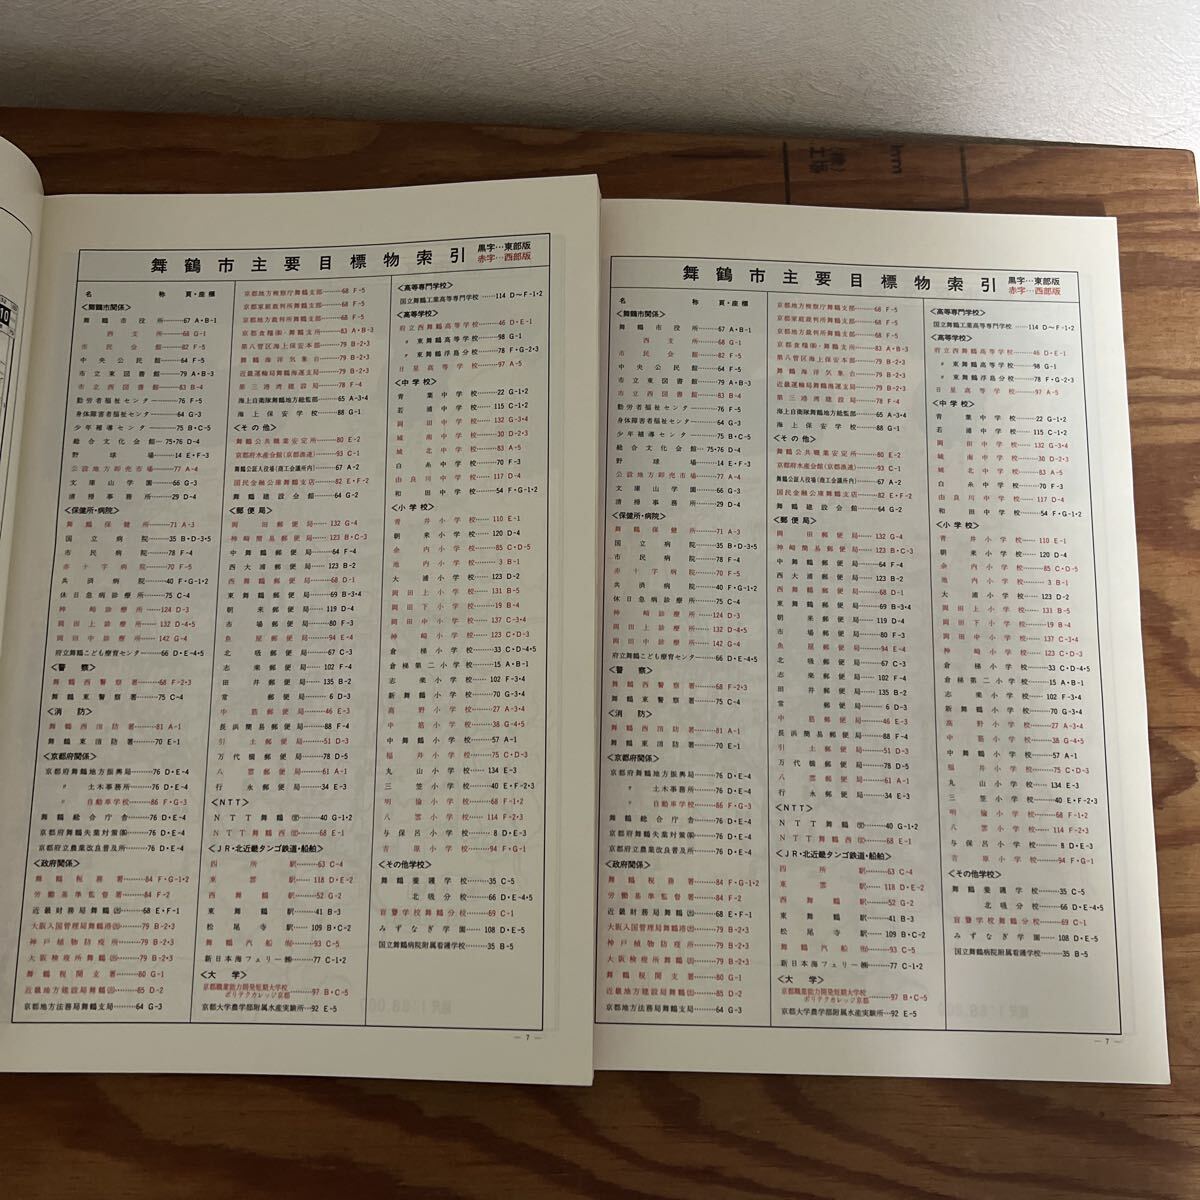 舞鶴市主要目標物索引
黒字…東部版
赤字…西部版
名 称 頁・座標
<舞鶴市関係>
舞鶴市役所……67 A・B-1
〃 西支所……68 G-1
市民会館……82 F-5
中央公民館……64 F-5
市立東図書館……79 A・B-3
市立西図書館……83 B-4
勤労者福祉センター……76 F-5
身体障害者福祉センター……64 G-3
少年補導センター……75 B・C-5
総合文化会館……75・76 D-4
野球場……14 E・F-3
公設地方卸売市場……77 A-4
文庫山学園……66 G-3
清掃事務所……29 D-4
<保健所・病院>
舞鶴保健所……71 A-3
国立病院……35 B・D-3・5
市民病院……78 F-4
赤十字病院……70 F-5
共済病院……40 F・G-1・2
休日急病診療所……75 C-4
神崎診療所……124 D-3
岡田上診療所……132 D-4・5
岡田中診療所……142 G-4
府立舞鶴こども療育センター……66 D・E-4・5
<警察>
舞鶴西警察署……68 F-2・3
舞鶴東警察署……75 C-4
<消防>
舞鶴西消防署……81 A-1
舞鶴東消防署……70 E-1
<京都府関係>
京都府舞鶴地方振興局……76 D・E-4
〃 土木事務所……76 D・E-4
〃 自動車学校……86 F・G-3
舞鶴総合庁舎……76 D・E-4
京都府舞鶴失業対策㈿……76 D・E-4
京都府立農業改良普及所……76 D・E-4
<政府関係>
舞鶴税務署……84 F・G-1・2
労働基準監督署……84 F-2
近畿財務局舞鶴㊁……68 E・F-1
大阪入国管理局舞鶴港㊁……79 B-2・3
神戸植物防疫所……79 B-2・3
大阪検疫所舞鶴㊁……79 B-2・3
舞鶴税関支署……80 G-1
近畿地方建設局舞鶴㊁……85 D-2
京都地方法務局舞鶴支局……64 G-3
京都地方検察庁舞鶴支部……68 F-5
京都家庭裁判所舞鶴支部……68 F-5
京都地方裁判所舞鶴支部……68 F-5
京都食糧㈿・舞鶴支所……83 A・B-3
第八管区海上保安本部……79 B-2・3
舞鶴海洋気象台……79 B-2・3
近畿運輸局舞鶴海運支局……79 B-2・3
第三港湾建設局……78 F-4
海上自衛隊舞鶴地方総監部……65 A-3・4
海上保安学校……88 G-1
<その他>
舞鶴公共職業安定所……80 E-2
京都府水産会館(京都漁連)……93 C-1
舞鶴公証人役場(商工会議所内)……67 A-2
国民金融公庫舞鶴支店……82 E・F-2
舞鶴建設会館……64 G-2
<郵便局>
岡田郵便局……132 G-4
神崎簡易郵便局……123 B・C-3
中舞鶴郵便局……64 F-4
西大浦郵便局……123 B-2
西舞鶴郵便局……68 D-1
東舞鶴郵便局……69 B-3・4
朝来郵便局……119 D-4
市場郵便局……80 F-3
魚屋郵便局……94 E-4
北吸郵便局……67 C-3
志楽郵便局……102 F-4
田井郵便局……135 B-2
常郵便局……6 D-3
中筋郵便局……46 E-3
長浜簡易郵便局……88 F-4
引土郵便局……51 D-3
万代橋郵便局……78 D-5
八雲郵便局……61 A-1
行永郵便局……34 E-3
<NTT>
NTT舞鶴㊨……40 G-1・2
NTT舞鶴西㊨……68 E-1
<JR・北近畿タンゴ鉄道・船舶>
四所駅……63 C-4
東雲駅……118 D・E-2
西舞鶴駅……52 G-2
東舞鶴駅……41 B-3
松尾寺駅……109 B・C-2
舞鶴汽船㈲……93 C-5
新日本海フェリー㈱……77 C-1・2
<大学>
京都職業能力開発短期大学校
ポリテクカレッジ京都……97 B・C-5
京都大学農学部附属水産実験所…92 E-5
<高等専門学校>
国立舞鶴工業高等専門学校……114 D～F-1・2
<高等学校>
府立西舞鶴高等学校……46 D・E-1
〃 東舞鶴高等学校……98 G-1
〃 東舞鶴浮島分校……78 F・G-2・3
日星高等学校……97 A-5
<中学校>
青葉中学校……22 G-1・2
若浦中学校……115 C-1・2
岡田中学校……132 G-3・4
城南中学校……30 D-2・3
城北中学校……83 A-5
白糸中学校……70 F-3
由良川中学校……117 D-4
和田中学校……54 F・G-1・2
<小学校>
青井小学校……110 E-1
朝来小学校……120 D-4
余内小学校……85 C・D-5
池内小学校……3 B-1
大浦小学校……123 D-2
岡田上小学校……131 B-5
岡田下小学校……19 B-4
岡田中小学校……137 C-3・4
神崎小学校……123 C・D-3
倉梯小学校……33 C・D-4・5
倉梯第二小学校……15 A・B-1
志楽小学校……102 F-3・4
新舞鶴小学校……70 G-3・4
高野小学校……27 A-3・4
中筋小学校……38 G-4・5
中舞鶴小学校……57 A-1
福井小学校……75 C・D-3
丸山小学校……134 E-3
三笠小学校……40 E・F-2・3
明倫小学校……68 F-1・2
八雲小学校……114 F-2・3
与保呂小学校……8 D・E-3
吉原小学校……94 F・G-1
<その他学校>
舞鶴養護学校……35 C-5
〃 北吸分校……66 D・E-4・5
盲聾学校舞鶴分校……69 C-1
みずなぎ学園……108 D・E-5
国立舞鶴病院附属看護学校……35 B-5
— 7 —
舞鶴市主要目標物索引
黒字…東部版
赤字…西部版
名 称 頁・座標
<舞鶴市関係>
舞鶴市役所……67 A・B-1
〃 西支所……68 G-1
市民会館……82 F-5
中央公民館……64 F-5
市立東図書館……79 A・B-3
市立西図書館……83 B-4
勤労者福祉センター……76 F-5
身体障害者福祉センター……64 G-3
少年補導センター……75 B・C-5
総合文化会館……75・76 D-4
野球場……14 E・F-3
公設地方卸売市場……77 A-4
文庫山学園……66 G-3
清掃事務所……29 D-4
<保健所・病院>
舞鶴保健所……71 A-3
国立病院……35 B・D-3・5
市民病院……78 F-4
赤十字病院……70 F-5
共済病院……40 F・G-1・2
休日急病診療所……75 C-4
神崎診療所……123 D-3
岡田上診療所……132 D-4・5
岡田中診療所……142 G-4
府立舞鶴こども療育センター……66 D・E-4・5
<警察>
舞鶴西警察署……68 F-2・3
舞鶴東警察署……75 C-4
<消防>
舞鶴西消防署……81 A-1
舞鶴東消防署……70 E-1
<京都府関係>
京都府舞鶴地方振興局……76 D・E-4
〃 土木事務所……76 D・E-4
〃 自動車学校……86 F・G-3
舞鶴総合庁舎……76 D・E-4
京都府舞鶴失業対策㈿……76 D・E-4
京都府立農業改良普及所……76 D・E-4
<政府関係>
舞鶴税務署……84 F・G-1・2
労働基準監督署……84 F-2
近畿財務局舞鶴㊁……68 E・F-1
大阪入国管理局舞鶴港㊁……79 B-2・3
神戸植物防疫所……79 B-2・3
大阪検疫所舞鶴㊁……79 B-2・3
舞鶴税関支署……80 G-1
近畿地方建設局舞鶴㊁……85 D-2
京都地方法務局舞鶴支局……64 G-3
京都地方検察庁舞鶴支部……68 F-5
京都家庭裁判所舞鶴支部……68 F-5
京都地方裁判所舞鶴支部……68 F-5
京都食糧㈿・舞鶴支所……83 A・B-3
第八管区海上保安本部……79 B-2・3
舞鶴海洋気象台……79 B-2・3
近畿運輸局舞鶴海運支局……79 B-2・3
第三港湾建設局……78 F-4
海上自衛隊舞鶴地方総監部……65 A-3・4
海上保安学校……88 G-1
<その他>
舞鶴公共職業安定所……80 E-2
京都府水産会館(京都漁連)……93 C-1
舞鶴公証人役場(商工会議所内)……67 A-2
国民金融公庫舞鶴支店……82 E・F-2
舞鶴建設会館……64 G-2
<郵便局>
岡田郵便局……132 G-4
神崎簡易郵便局……123 B・C-3
中舞鶴郵便局……64 F-4
西大浦郵便局……123 B-2
西舞鶴郵便局……68 D-1
東舞鶴郵便局……69 B-3・4
朝来郵便局……119 D-4
市場郵便局……80 F-3
魚屋郵便局……94 E-4
北吸郵便局……67 C-3
志楽郵便局……102 F-4
田井郵便局……135 B-2
常郵便局……6 D-3
中筋郵便局……46 E-3
長浜簡易郵便局……88 F-4
引土郵便局……51 D-3
万代橋郵便局……78 D-5
八雲郵便局……61 A-1
行永郵便局……34 E-3
<NTT>
NTT舞鶴㊨……40 G-1・2
NTT舞鶴西㊨……68 E-1
<JR・北近畿タンゴ鉄道・船舶>
四所駅……63 C-4
東雲駅……118 D・E-2
西舞鶴駅……52 G-2
東舞鶴駅……41 B-3
松尾寺駅……109 B・C-2
舞鶴汽船㈲……93 C-5
新日本海フェリー㈱……77 C-1・2
<大学>
京都職業能力開発短期大学校
ポリテクカレッジ京都……97 B・C-5
京都大学農学部附属水産実験所…92 E-5
<高等専門学校>
国立舞鶴工業高等専門学校……114 D～F-1・2
<高等学校>
府立西舞鶴高等学校……46 D・E-1
〃 東舞鶴高等学校……98 G-1
〃 東舞鶴浮島分校……78 F・G-2・3
日星高等学校……97 A-5
<中学校>
青葉中学校……22 G-1・2
若浦中学校……115 C-1・2
岡田中学校……132 G-3・4
城南中学校……30 D-2・3
城北中学校……83 A-5
白糸中学校……70 F-3
由良川中学校……117 D-4
和田中学校……54 F・G-1・2
<小学校>
青井小学校……110 E-1
朝来小学校……120 D-4
余内小学校……85 C・D-5
池内小学校……3 B-1
大浦小学校……123 D-2
岡田上小学校……131 B-5
岡田下小学校……19 B-4
岡田中小学校……137 C-3・4
神崎小学校……123 C・D-3
倉梯小学校……33 C・D-4・5
倉梯第二小学校……15 A・B-1
志楽小学校……102 F-3・4
新舞鶴小学校……70 G-3・4
高野小学校……27 A-3・4
中筋小学校……38 G-4・5
中舞鶴小学校……57 A-1
福井小学校……75 C・D-3
丸山小学校……134 E-3
三笠小学校……40 E・F-2・3
明倫小学校……68 F-1・2
八雲小学校……114 F-2・3
与保呂小学校……8 D・E-3
吉原小学校……94 F・G-1
<その他学校>
舞鶴養護学校……35 C-5
〃 北吸分校……66 D・E-4・5
盲聾学校舞鶴分校……69 C-1
みずなぎ学園……108 D・E-5
国立舞鶴病院附属看護学校……35 B-5
— 7 —